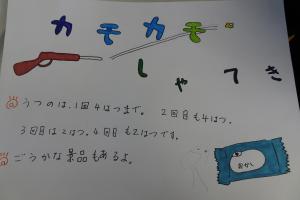 カモカモ
しゃてき
@うつのは、1回4はつまで。 2回目も4はつ。
3回目は2はつ。4回目も2はつです。
@ごうかな景品もあるよ。
おかし